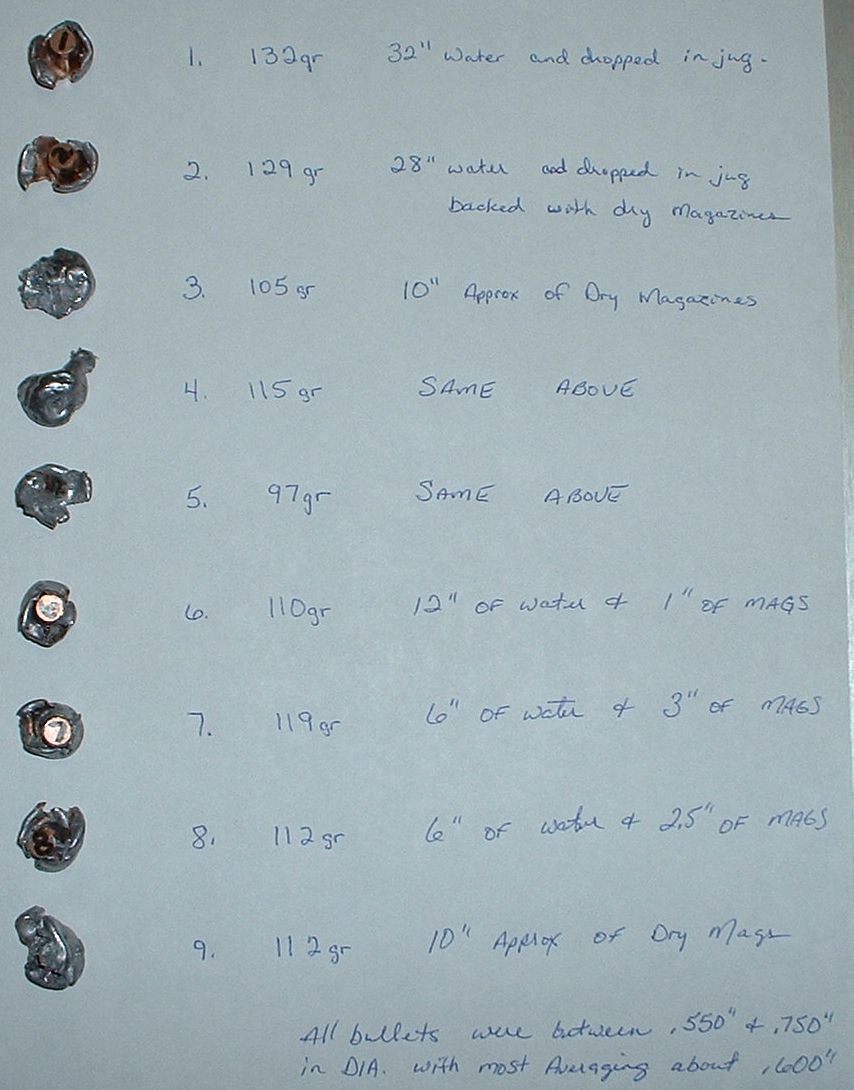 1. 132gr 32" water and dropped in jug.
2. 129 gr 28" water and dropped in jug
backed with dry Magazines
3. 105 gr 10" Approx of Dry Magazines
4. 115 gr SAME ABOVE
5. 97gr SAME ABOVE
6. 110gr 12" OF water & 1" OF MAGS
7. 119 gr 6" OF water & 3" OF MAGS
8. 112 gr 6" OF water & 2.5" OF MAGS
9. 112 gr 10" Approx of Dry Mags
All bullets were between .550" & .750"
in DIA. with most Averaging about .600"
1
7